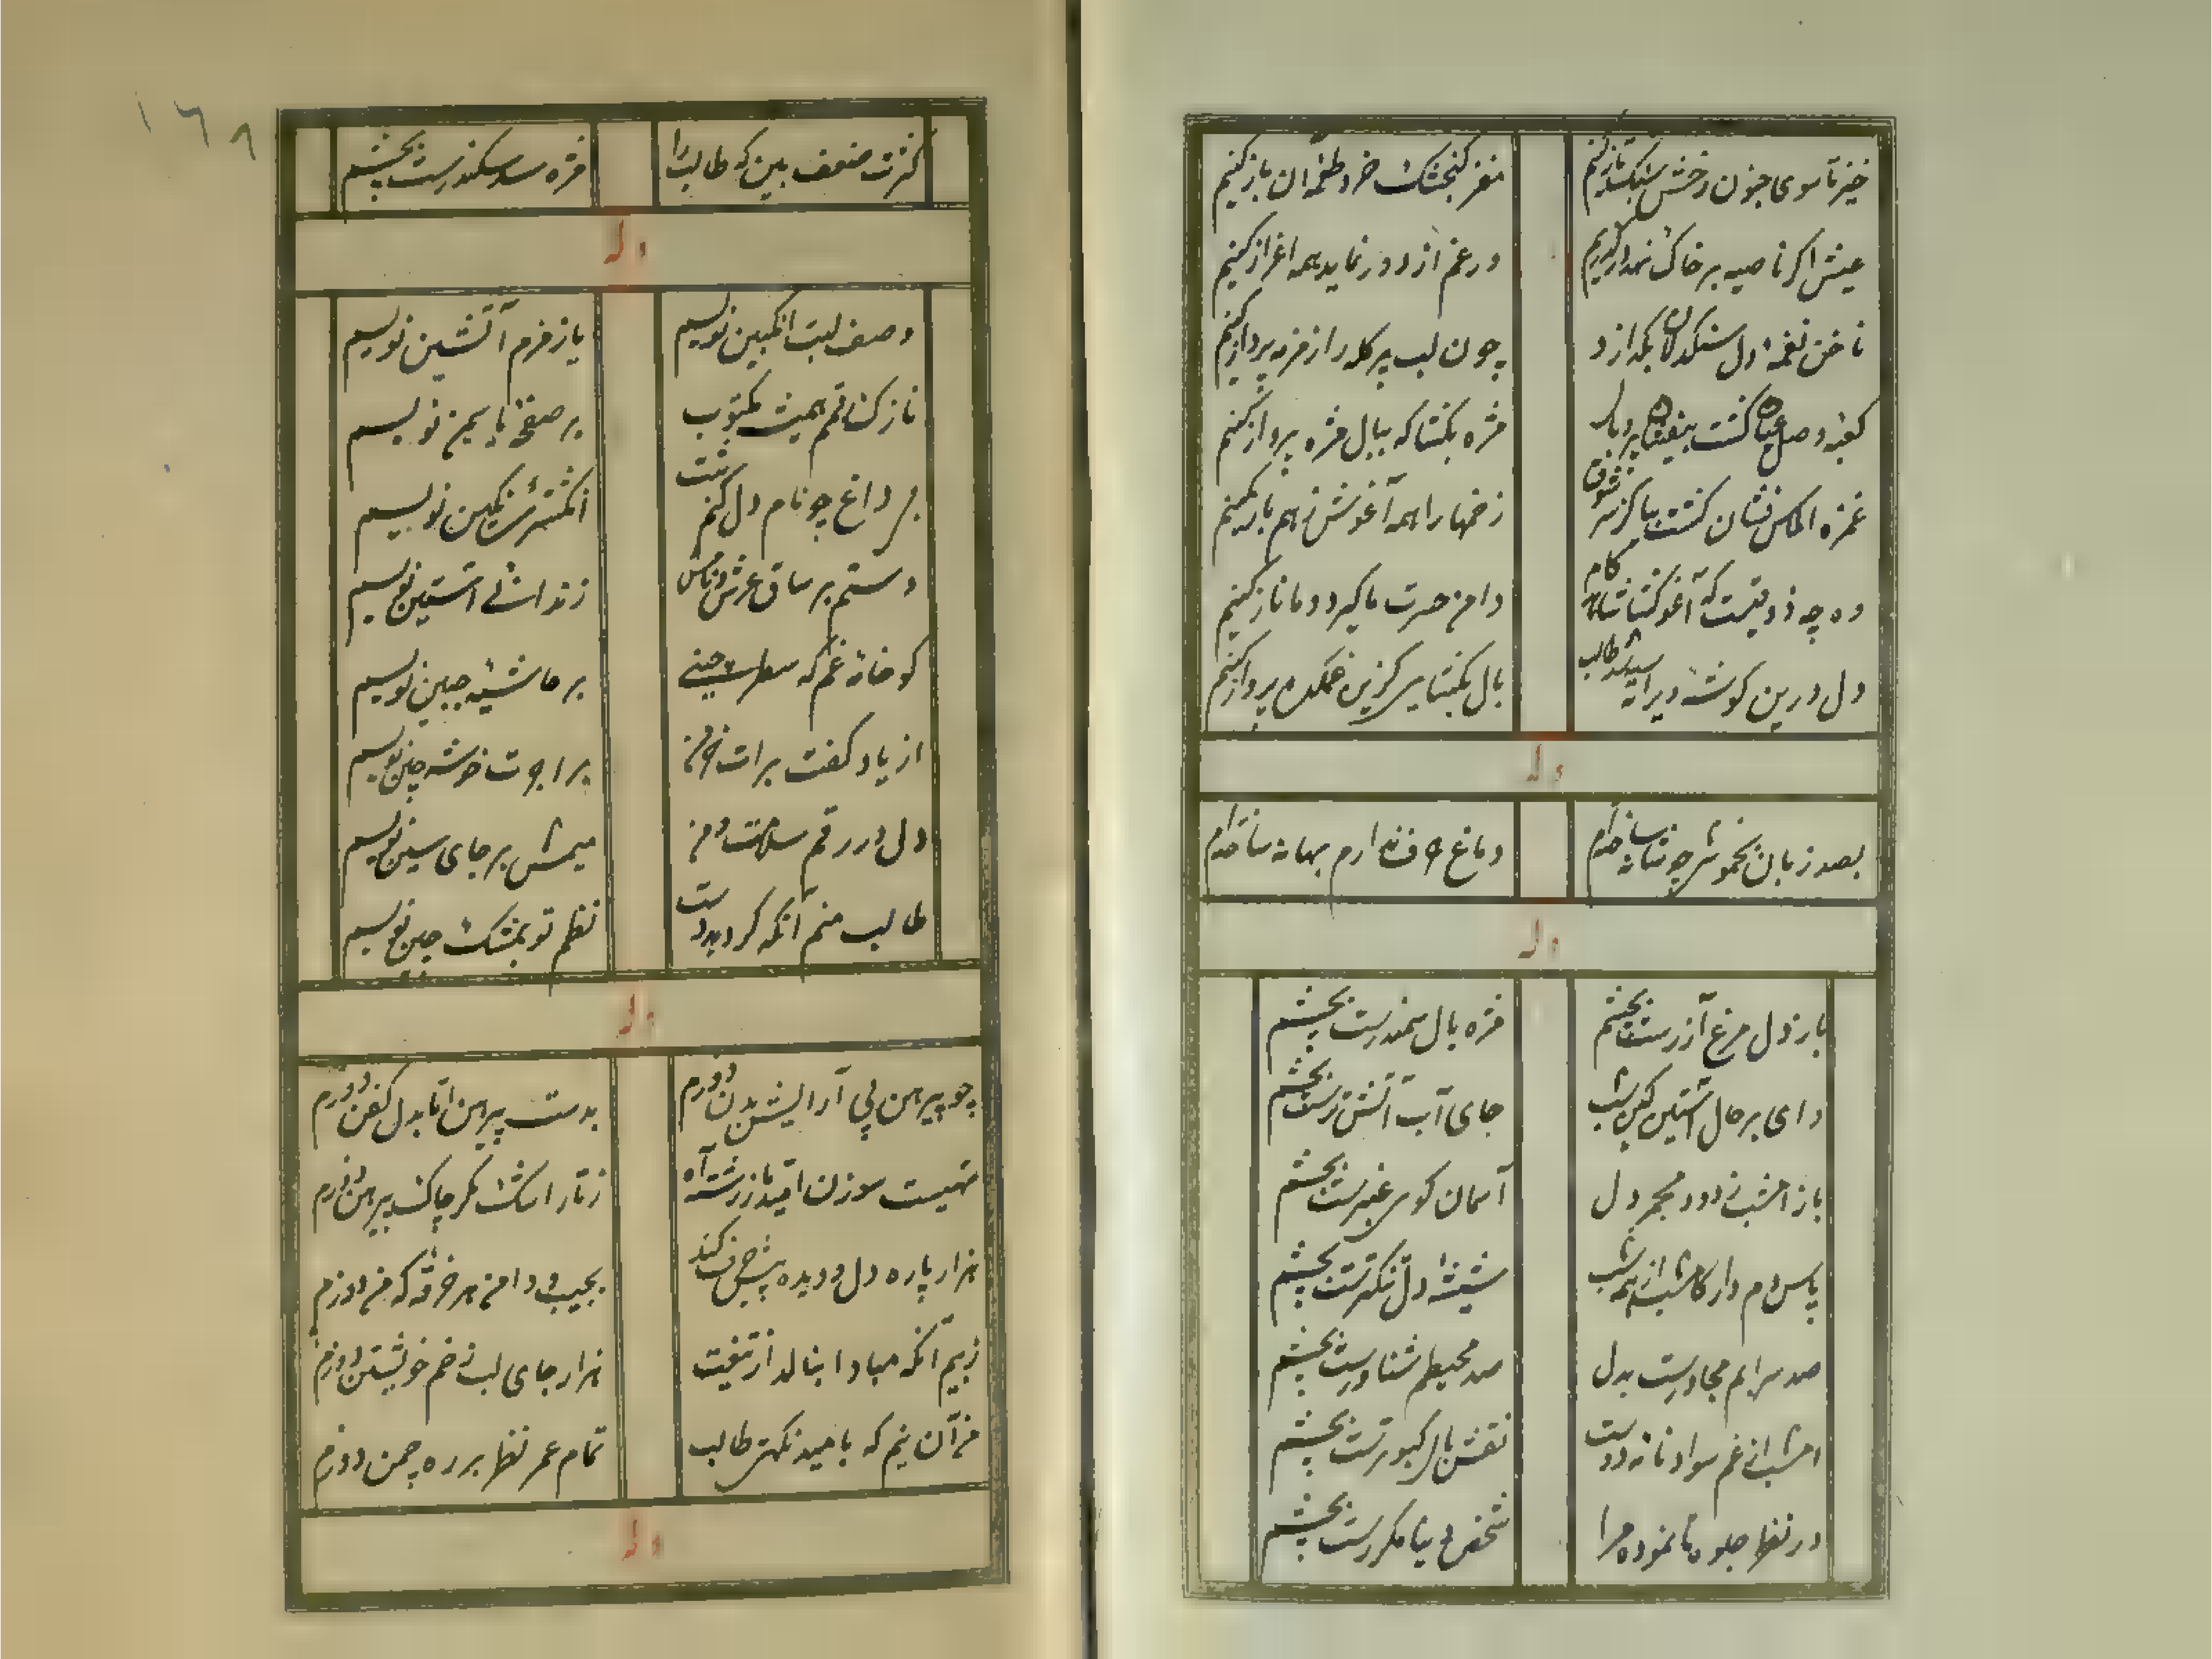 خیز تا سوی جنون رخش سبکتاز کنیم
مغز کنجشک خرد طعمهٔ آن باز کنیم
عیش اگر ناصیه بر خاک نهد
ور غم از دور نماید همه اعزاز کنیم
ناخن نغمه دل سنگدلان بگدازد
چون لب پر گله را زمزمه پرداز کنیم
کعبه وصل عیان گشت
مژه بگشا که ببال مژه پرواز کنیم
غمزه الماس فشان گشت بیا کز سر شوق
زخمها را همه آغوش ز هم باز کنیم
وه چه ذوقیست که آغوش گشا شاهد کام
دامن حسرت ما گیرد و ما ناز کنیم
دل درین گوشه ویرانه طالب
بال بگشای کزین غمکده پرواز کنیم
وله
بصد زبان بخموشی چو شانه ساخته‌ام
دماغ حرف ندارم بهانه ساخته‌ام
وله
باز دل مرغ آزرست بچشم
مژه بال سمندرست بچشم
وای بر حال آستین کامشب
جای آب آتش ترست بچشم
باز امشب ز دود مجمر دل
آسمان کوی عنبرست بچشم
پاس دم دار کامشب از همه شب
شیشه دل تنکترست بچشم
صد سرابم مجاورست بدل
صد محیطم شناورست بچشم
امشب از غم سواد نامه دوست
نقش بال کبوترست بچشم
در نظر جلوه تا نموده مرا
شخص بینا مکررست بچشم
۱۶۸
کثرت ضعف بین که طالب را
مژه سد سکندرست بچشم
وله
وصف لبت انگبین نویسم
یا زمزم آتشین نویسم
ناز کنا قم همیشه مکتوب
بر صفحهٔ یاسمین نویسم
بر داغ چو نام دل کنم ثبت
انگشتری نگین نویسم
دستم بر ساق عرش
زندانی آستین نویسم
کو خانهٔ غم که سطر چینی
بر حاشیهٔ جبین نویسم
از یاد کفت برات خرمن
بر اجرت خوشه چین نویسم
دل در رقم سلامت و من
میمش بر جای سین نویسم
طالب منم آنکه کرده دست
نظم تو بمشک چین نویسم
وله
چو پیرهن پی آرایش بدن دوزم
بدست پیرهن اما بدل کفن دوزم
تهیست سوزن امید ما ز رشته آه
ز تار اشک مگر چاک پیرهن دوزم
هزار پاره دل و دیده پیش کند
بجیب و دامن هر خرقه که من دوزم
ز بیم آنکه مبادا بنالد از تیغت
هزار جای لب زخم خویشتن دوزم
من آن نیم که بامید نکهتی طالب
تمام عمر نظر بر ره چمن دوزم
وله